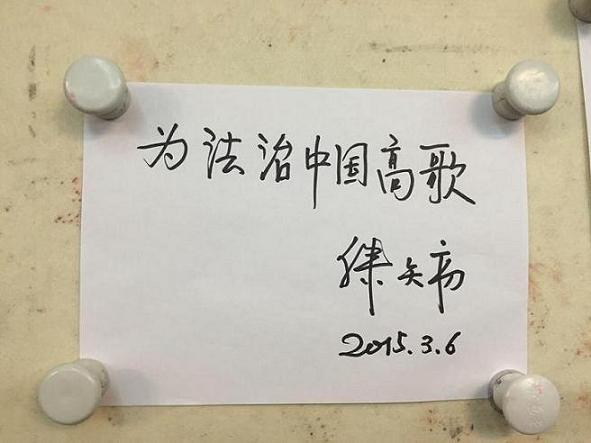 为法治中国高歌
滕矢初
2015.3.6